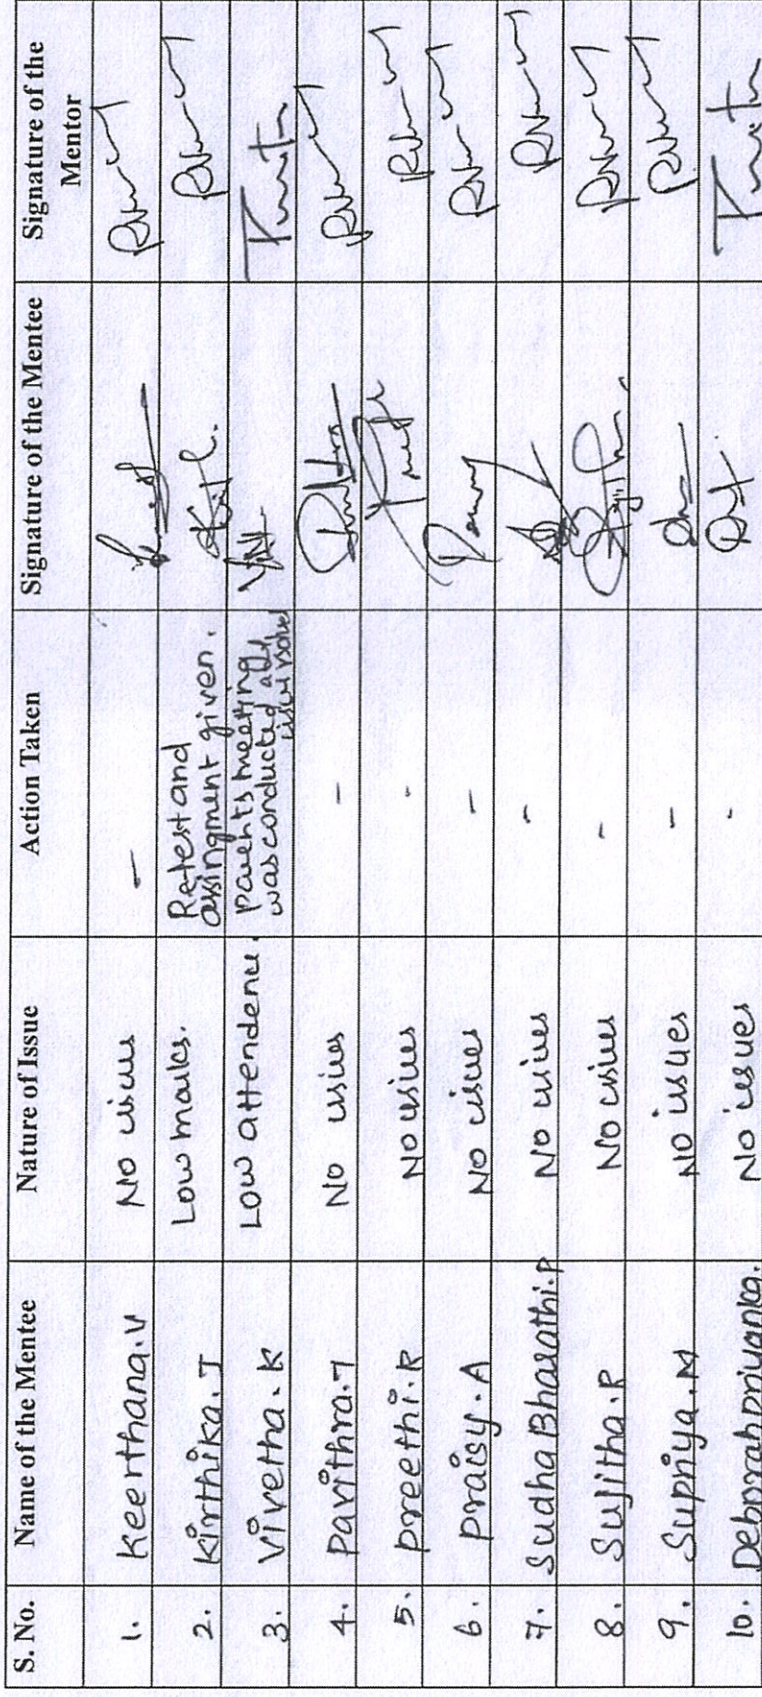 S. No. Name of the Mentee Nature of Issue Action Taken Signature of the Mentee Signature of the Mentor
1. Keerthana.V NO issues -
2. Kirthika.J Low marks. Retest and
assingment given.
3. Vivetha.K Low attendence. Parents meeting
was conducted and
4. Pavithra.T NO issues -
5. Preethi.R NO issues -
6. Praisy.A NO issues -
7. Sudha Bharathi.P NO issues -
8. Sujitha.R NO issues -
9. Supriya.M NO issues -
10. Deborah Priyanka. NO issues -